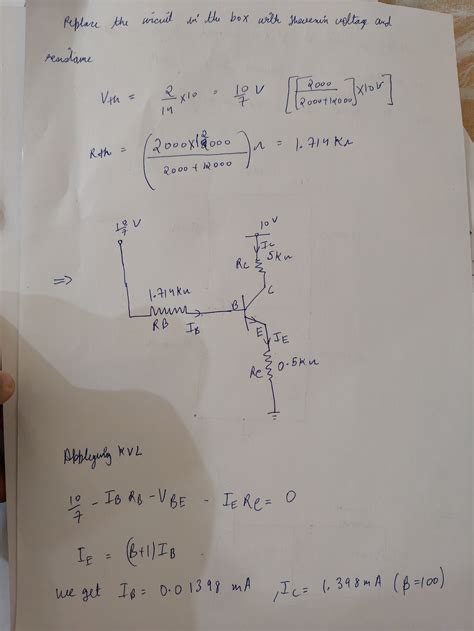 Replace the circuit in the box with thevenin voltage and
Vth = 2/14 × 10 = 10/7 V [ [2000/(2000+12000)] × 10V ]
Rth = ( (2000×12000)/(2000+12000) ) Ω = 1.714 KΩ
10/7 V
10V
IC
RC 5KΩ
C
⇒
1.714KΩ
RB
IB
B
E
IE
Re 0.5KΩ
Applying KVL
10/7 - IB RB - VBE - IE Re = 0
IE = (β+1) IB
we get IB = 0.01398 mA , IC = 1.398mA (β=100)